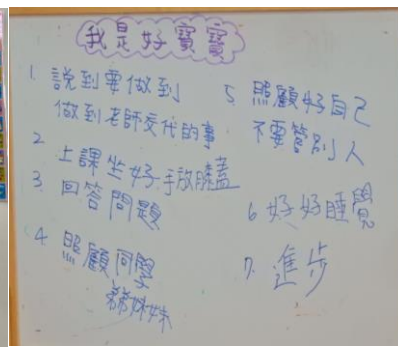 我是好寶寶
1. 說到要做到
做到老師交代的事
2. 上課坐好手放膝蓋
3. 回答問題
4. 照顧同學
弟妹妹
5. 照顧好自己
不要管別人
6. 好好睡覺
7. 進步